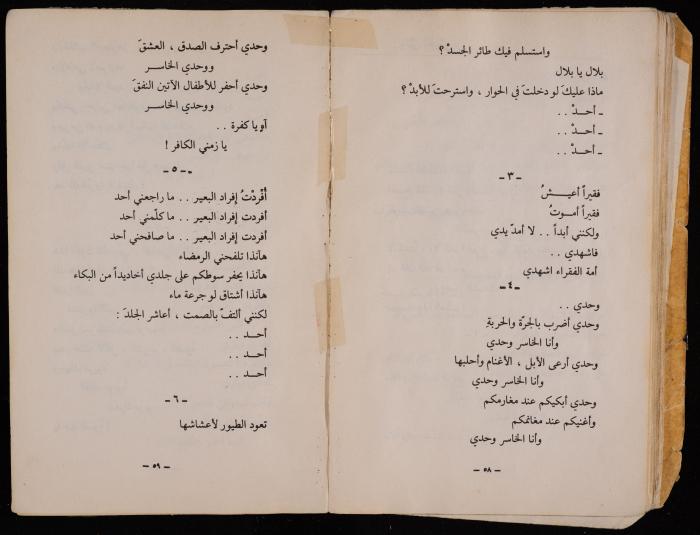 واستسلم فيك طائر الجسدْ ؟
بلال يا بلال
ماذا عليكَ لو دخلتَ في الحوار ، واسترحتَ للأبدْ ؟
ـ أحـدْ . .
ـ أحـدْ . .
ـ أحـدْ . .
ـ ٣ ـ
فقيراً أعيـــشُ
فقيراً أمـوتُ
ولكنني أبداً . . لا أمدّ يدي
فاشهدي . .
أمة الفقراء اشهدي
ـ ٤ ـ
وحدي . .
وحدي أضرب بالجرّة والحربةِ
وأنا الخاسر وحدي
وحدي أرعى الأبل ، الأغنام وأحلبها
وأنا الخاسر وحدي
وحدي أبكيكم عند مغارمكم
وأغنيكم عند مغانمكم
وأنا الخاسر وحدي
ـ ٥٨ ـ
وحدي أحترف الصدق ، العشقَ
ووحدي الخاســر
وحدي أحفر للأطفال الآتين النفقَ
ووحدي الخاســر
آه يا كفرة . .
يا زمني الكافر !
ـ ٥ ـ
أُفْردْتُ إفراد البعير . . ما راجعني أحد
أفردت إفراد البعير . . ما كلّمني أحد
أفردت إفراد البعير . . ما صافحني أحد
هأنذا تلفحني الرمضاء
هأنذا يحفر سوطكم على جلدي أخاديداً من البكاء
هأنذا أشتاق لو جرعة ماء
لكنني ألتفّ بالصمت ، أعاشر الجلدَ :
أحـد . .
أحـد . .
أحـد . .
ـ ٦ ـ
تعود الطيور لأعشاشها
ـ ٥٩ ـ